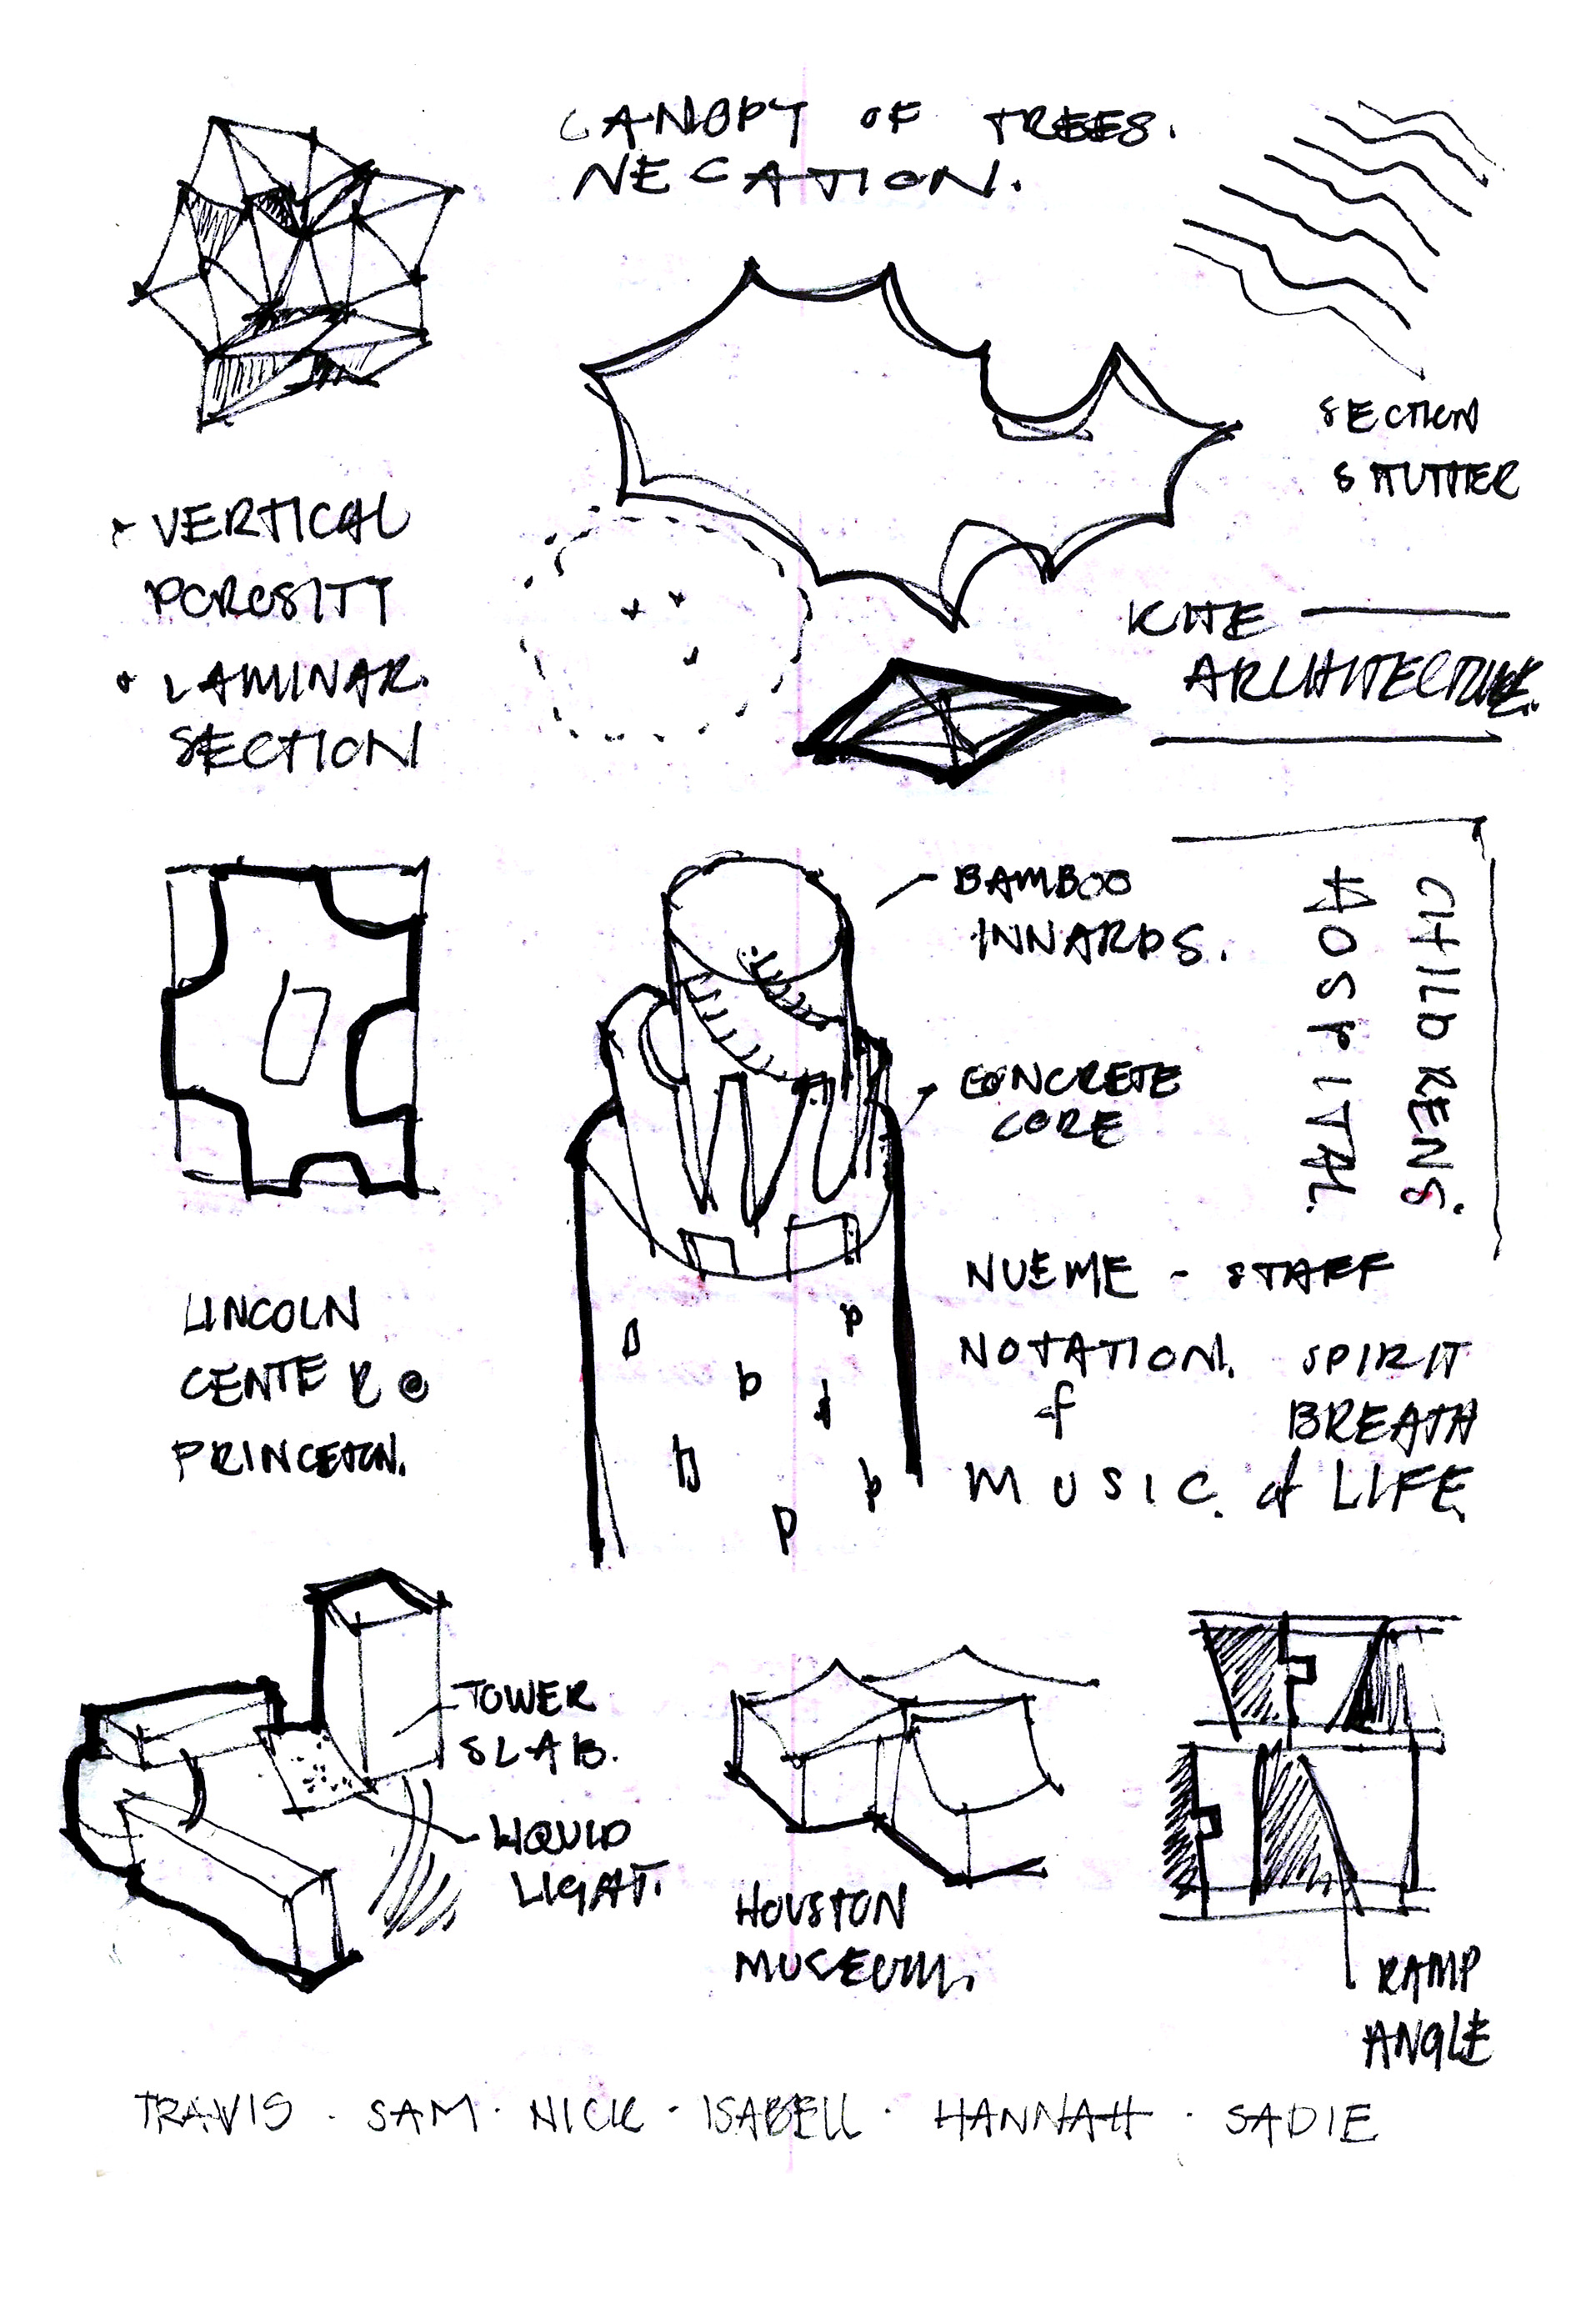 CANOPY OF TREES.
NEGATION.
SECTION
STUTTER
VERTICAL
POROSITY
LAMINAR
SECTION
KITE
ARCHITECTURE.
BAMBOO
INNARDS.
CONCRETE
CORE
CHILDRENS
HOSPITAL.
LINCOLN
CENTER @
PRINCETON.
NUEME - STAFF
NOTATION. SPIRIT
of BREATH
MUSIC. & LIFE
TOWER
SLAB.
LIQUID
LIGHT.
HOUSTON
MUSEUM.
RAMP
ANGLE
TRAVIS · SAM · NICK · ISABELL · HANNAH · SADIE